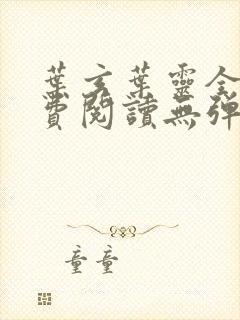 葉玄葉靈全
費閱讀無彈
童童